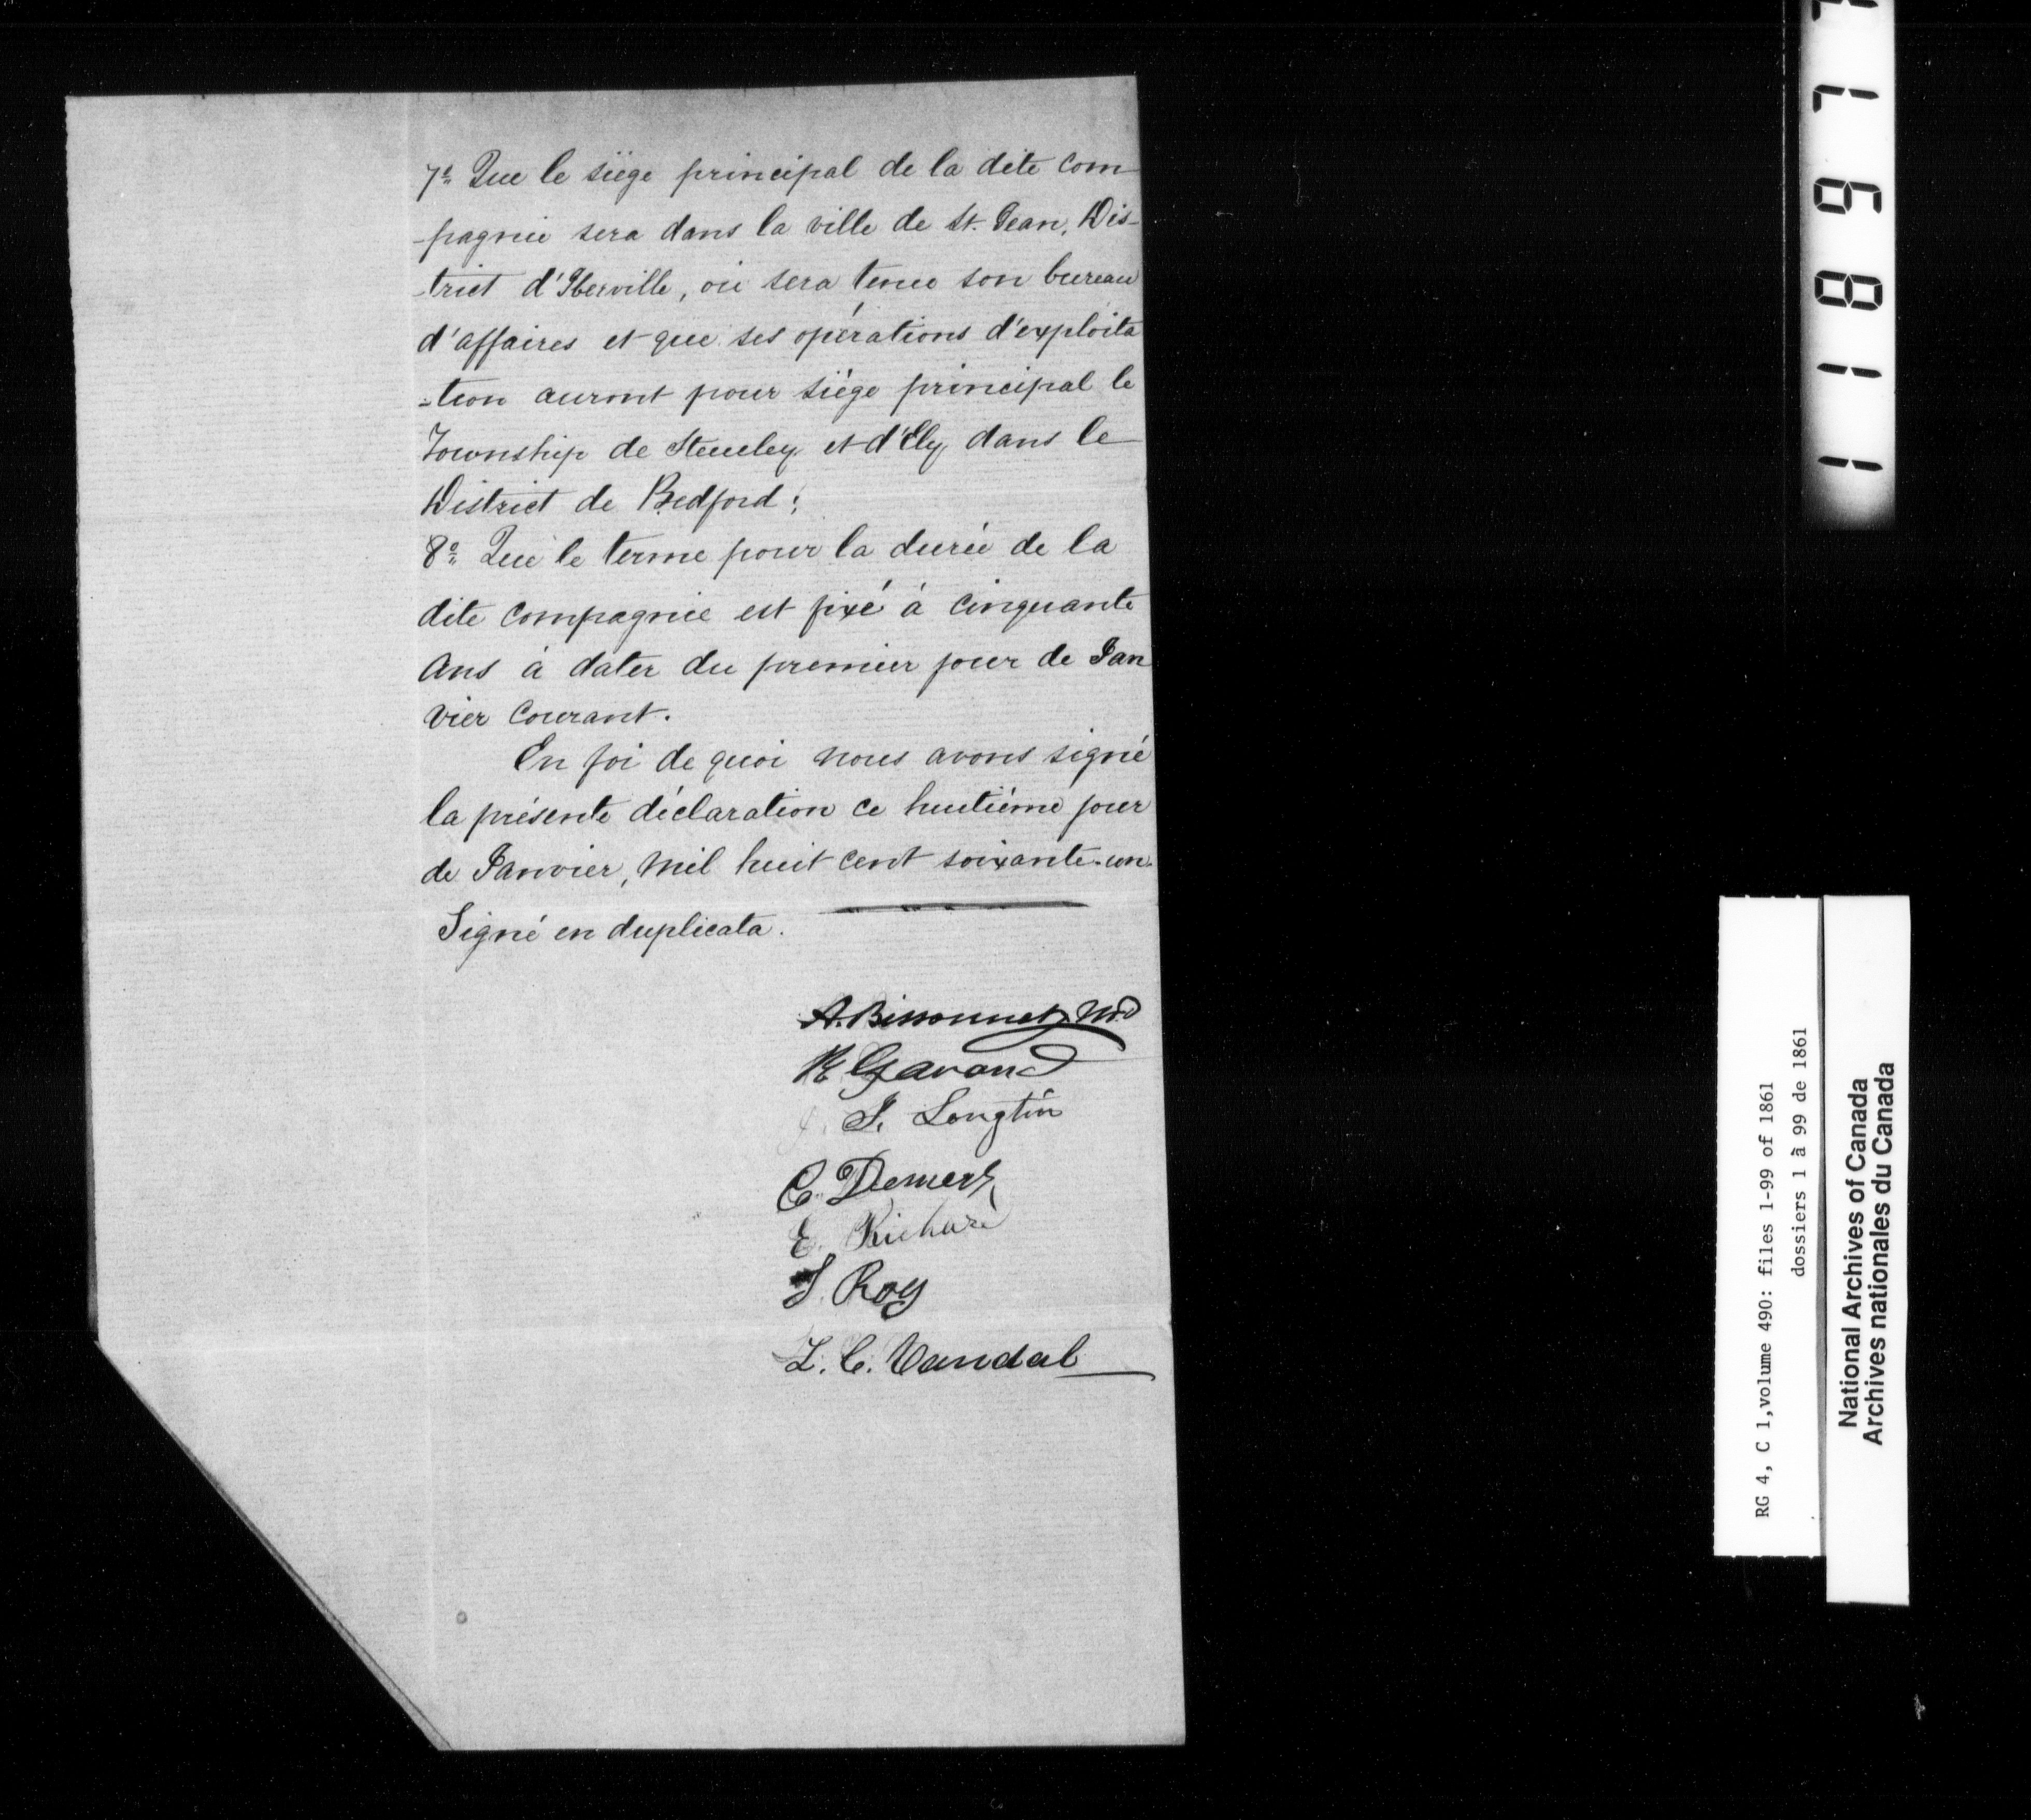 7º Que le siège principal de la dite com
-pagnie sera dans la ville de St. Jean, Dis-
-trict d'Iberville, où sera tenue son bureau
d'affaires et que ses opérations d'exploita
-tion auront pour siège principal le
Township de Stukeley et d'Ely dans le
District de Bedford;
8º Que le terme pour la durée de la
dite compagnie est fixé à cinquante
ans à dater du premier jour de Jan
vier courant.
En foi de quoi nous avons signé
la présente déclaration ce huitième jour
de Janvier, mil huit cent soixante-un.
Signé en duplicata.
A. Bissonnet MD
J. Longtin
C. Demers
E. Richard
J. Roy
L. C. Vandal
RG 4, C 1,volume 490: files 1-99 of 1861
dossiers 1 à 99 de 1861
National Archives of Canada
Archives nationales du Canada